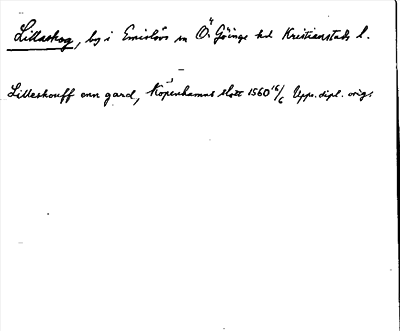 Lillaskog, by i Emislöv sn Ö. Göinge hd Kristianstads l.
Lilleskouff enn gard, Kopenhamns slott 1560 16/6 Upps. dipl. orig.